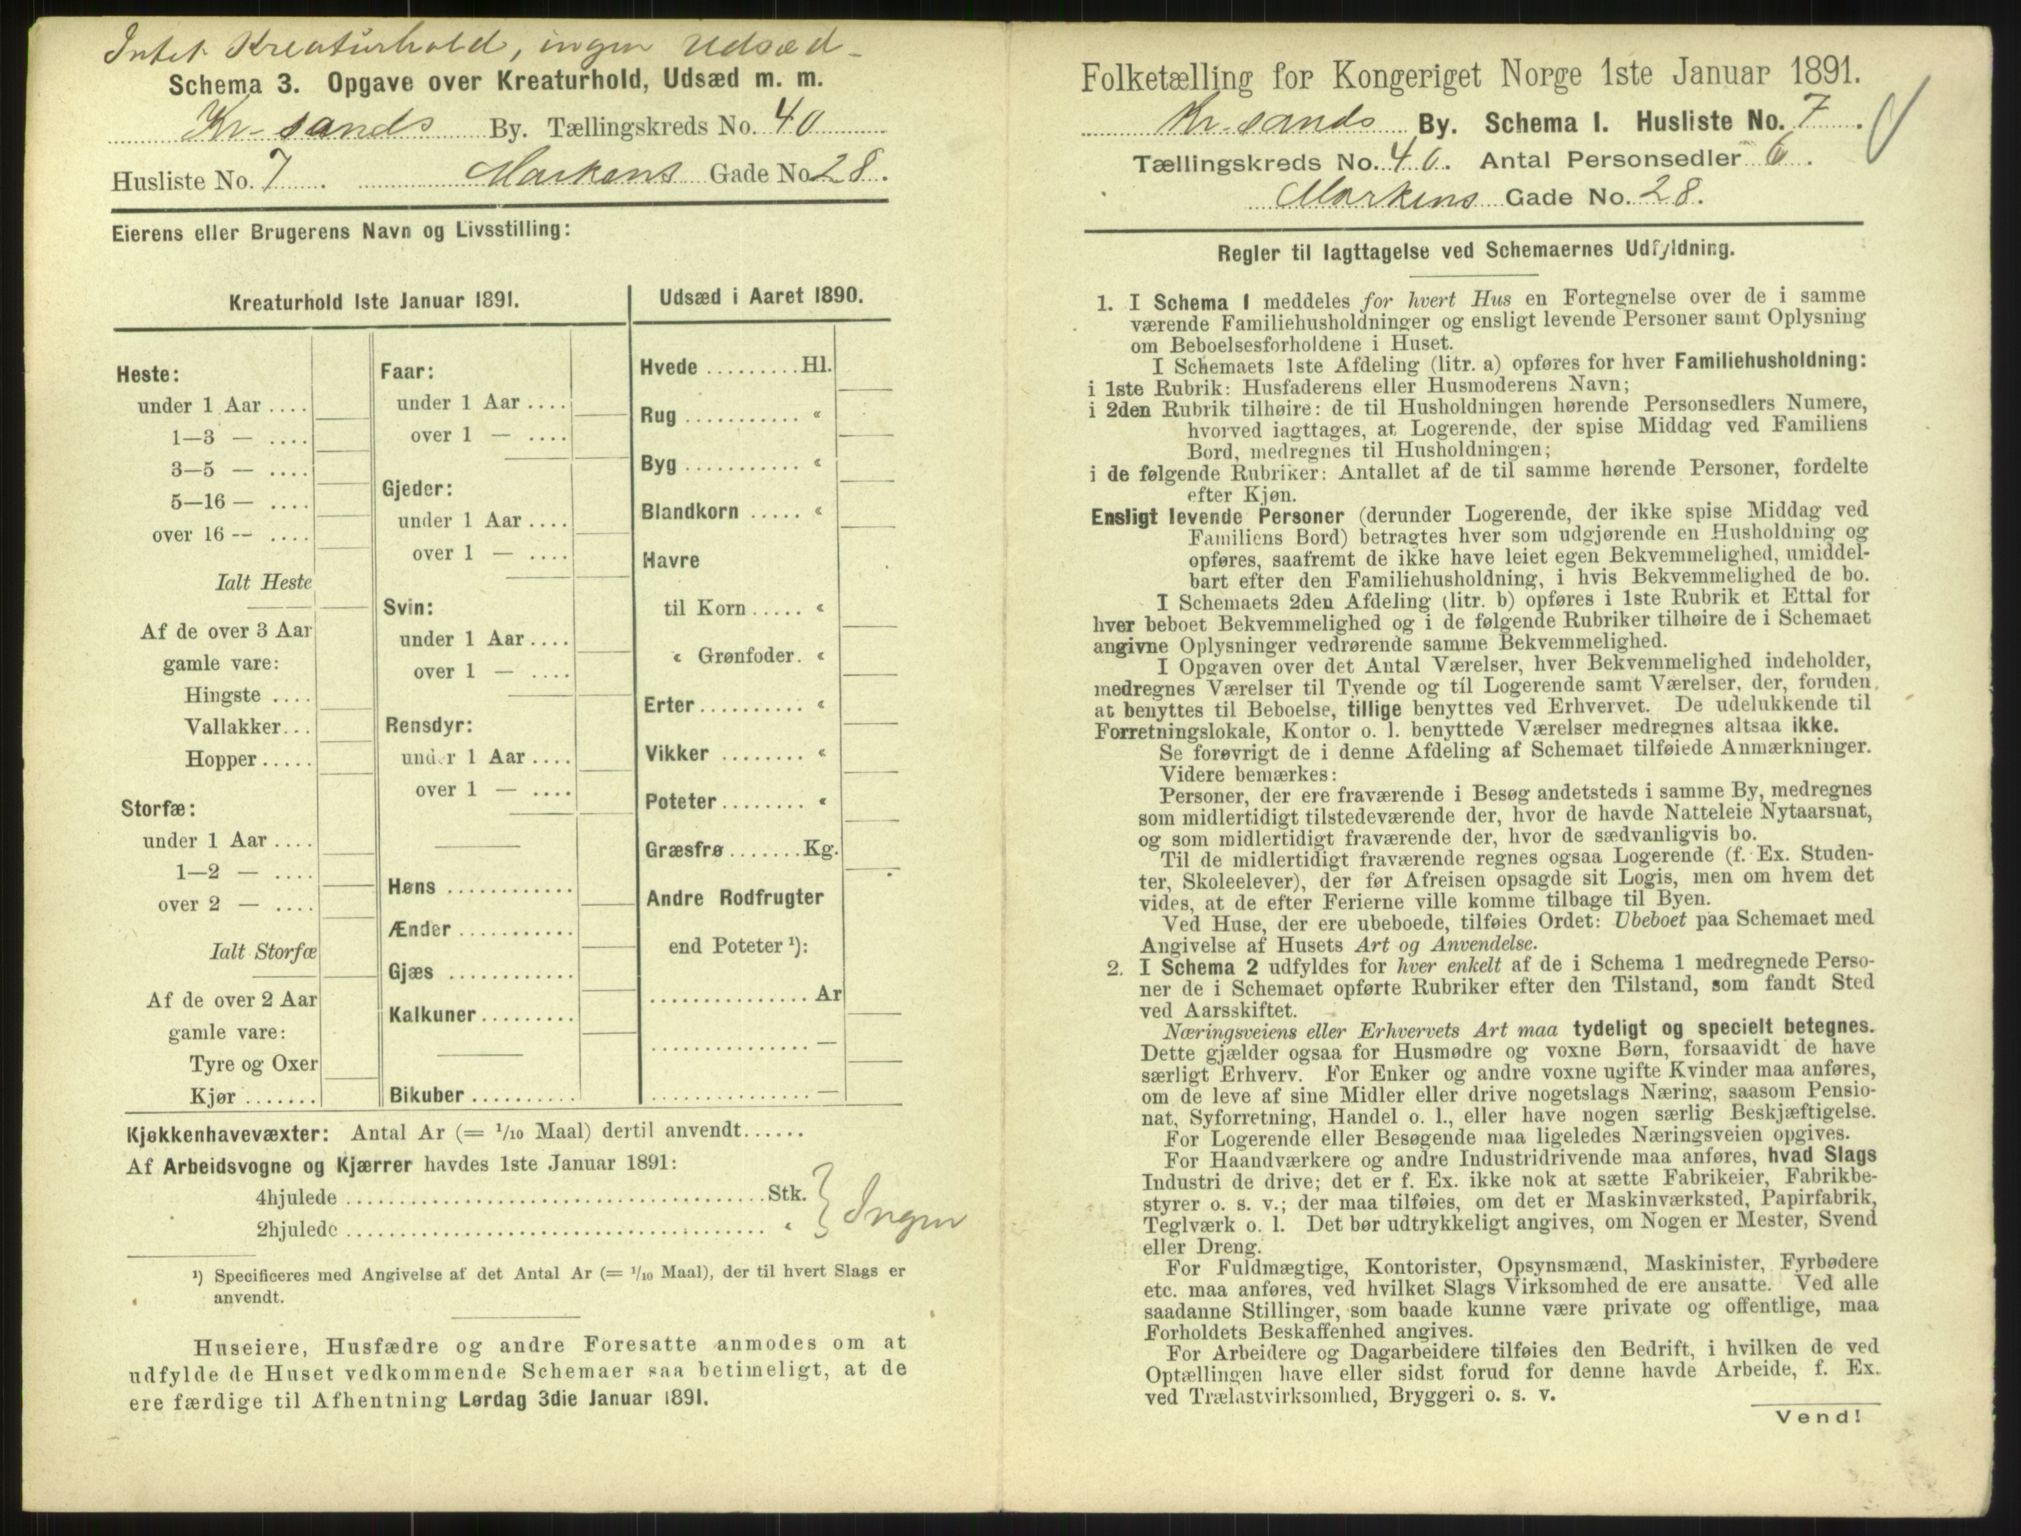 Intet Kreaturhold, ingen Udsæd
Schema 3. Opgave over Kreaturhold, Udsæd m. m.
Kr-sands By. Tællingskreds No. 40
Husliste No. 7. Markens Gade No 28.
Eierens eller Brugerens Navn og Livsstilling:
Kreaturhold 1ste Januar 1891.
Heste:
under 1 Aar ....
1—3 — ....
3—5 — ....
5—16 — ....
over 16 — ....
Ialt Heste
Af de over 3 Aar
gamle vare:
Hingste ....
Vallakker...
Hopper.....
Storfæ:
under 1 Aar ....
1—2 — ....
over 2 — ....
Ialt Storfæ
Af de over 2 Aar
gamle vare:
Tyre og Oxer
Kjør .......
Faar:
under 1 Aar ....
over 1 — ....
Gjeder:
under 1 Aar ....
over 1 — ....
Svin:
under 1 Aar ....
over 1 — ....
Rensdyr:
under 1 Aar ....
over 1 — ....
Høns ............
Ænder ...........
Gjæs ............
Kalkuner.........
Bikuber ..........
Udsæd i Aaret 1890.
Hvede .........Hl.
Rug ........... «
Byg ........... «
Blandkorn ..... «
Havre
til Korn ..... «
« Grønfoder. «
Erter.......... «
Vikker ........ «
Poteter........ «
Græsfrø .......Kg.
Andre Rodfrugter
end Poteter ¹):
...............Ar
............... —
............... —
Kjøkkenhavevæxter: Antal Ar (= 1/10 Maal) dertil anvendt......
Af Arbeidsvogne og Kjærrer havdes 1ste Januar 1891:
4hjulede ........................................Stk.
2hjulede ........................................ «
} Ingen
¹) Specificeres med Angivelse af det Antal Ar (= 1/10 Maal), der til hvert Slags er
anvendt.
Huseiere, Husfædre og andre Foresatte anmodes om at
udfylde de Huset vedkommende Schemaer saa betimeligt, at de
ere færdige til Afhentning Lørdag 3die Januar 1891.
Folketælling for Kongeriget Norge 1ste Januar 1891.
Kr-sands By. Schema I. Husliste No. 7.
Tællingskreds No. 40. Antal Personsedler 6.
Markens Gade No. 28.
Regler til Iagttagelse ved Schemaernes Udfyldning.
1. I Schema 1 meddeles for hvert Hus en Fortegnelse over de i samme
værende Familiehusholdninger og ensligt levende Personer samt Oplysning
om Beboelsesforholdene i Huset.
I Schemaets 1ste Afdeling (litr. a) opføres for hver Familiehusholdning:
i 1ste Rubrik: Husfaderens eller Husmoderens Navn;
i 2den Rubrik tilhøire: de til Husholdningen hørende Personsedlers Numere,
hvorved iagttages, at Logerende, der spise Middag ved Familiens
Bord, medregnes til Husholdningen;
i de følgende Rubriker: Antallet af de til samme hørende Personer, fordelte
efter Kjøn.
Ensligt levende Personer (derunder Logerende, der ikke spise Middag ved
Familiens Bord) betragtes hver som udgjørende en Husholdning og
opføres, saafremt de ikke have leiet egen Bekvemmelighed, umiddel-
bart efter den Familiehusholdning, i hvis Bekvemmelighed de bo.
I Schemaets 2den Afdeling (litr. b) opføres i 1ste Rubrik et Ettal for
hver beboet Bekvemmelighed og i de følgende Rubriker tilhøire de i Schemaet
angivne Oplysninger vedrørende samme Bekvemmelighed.
I Opgaven over det Antal Værelser, hver Bekvemmelighed indeholder,
medregnes Værelser til Tyende og til Logerende samt Værelser, der, foruden
at benyttes til Beboelse, tillige benyttes ved Erhvervet. De udelukkende til
Forretningslokale, Kontor o. l. benyttede Værelser medregnes altsaa ikke.
Se forøvrigt de i denne Afdeling af Schemaet tilføiede Anmærkninger.
Videre bemærkes:
Personer, der ere fraværende i Besøg andetsteds i samme By, medregnes
som midlertidigt tilstedeværende der, hvor de havde Natteleie Nytaarsnat,
og som midlertidigt fraværende der, hvor de sædvanligvis bo.
Til de midlertidigt fraværende regnes ogsaa Logerende (f. Ex. Studen-
ter, Skoleelever), der før Afreisen opsagde sit Logis, men om hvem det
vides, at de efter Ferierne ville komme tilbage til Byen.
Ved Huse, der ere ubeboede, tilføies Ordet: Ubeboet paa Schemaet med
Angivelse af Husets Art og Anvendelse.
2. I Schema 2 udfyldes for hver enkelt af de i Schema 1 medregnede Perso-
ner de i Schemaet opførte Rubriker efter den Tilstand, som fandt Sted
ved Aarsskiftet.
Næringsveiens eller Erhvervets Art maa tydeligt og specielt betegnes.
Dette gjælder ogsaa for Husmødre og voxne Børn, forsaavidt de have
særligt Erhverv. For Enker og andre voxne ugifte Kvinder maa anføres,
om de leve af sine Midler eller drive nogetslags Næring, saasom Pensio-
nat, Syforretning, Handel o. l., eller have nogen særlig Beskjæftigelse.
For Logerende eller Besøgende maa ligeledes Næringsveien opgives.
For Haandværkere og andre Industridrivende maa anføres, hvad Slags
Industri de drive; det er f. Ex. ikke nok at sætte Fabrikeier, Fabrikbe-
styrer o. s. v.; der maa tilføies, om det er Maskinværksted, Papirfabrik,
Teglværk o. l. Det bør udtrykkeligt angives, om Nogen er Mester, Svend
eller Dreng.
For Fuldmægtige, Kontorister, Opsynsmænd, Maskinister, Fyrbødere
etc. maa anføres, ved hvilket Slags Virksomhed de ere ansatte. Ved alle
saadanne Stillinger, som baade kunne være private og offentlige, maa
Forholdets Beskaffenhed angives.
For Arbeidere og Dagarbeidere tilføies den Bedrift, i hvilken de ved
Optællingen have eller sidst forud for denne havde Arbeide, f. Ex.
ved Trælastvirksomhed, Bryggeri o. s. v.
Vend!